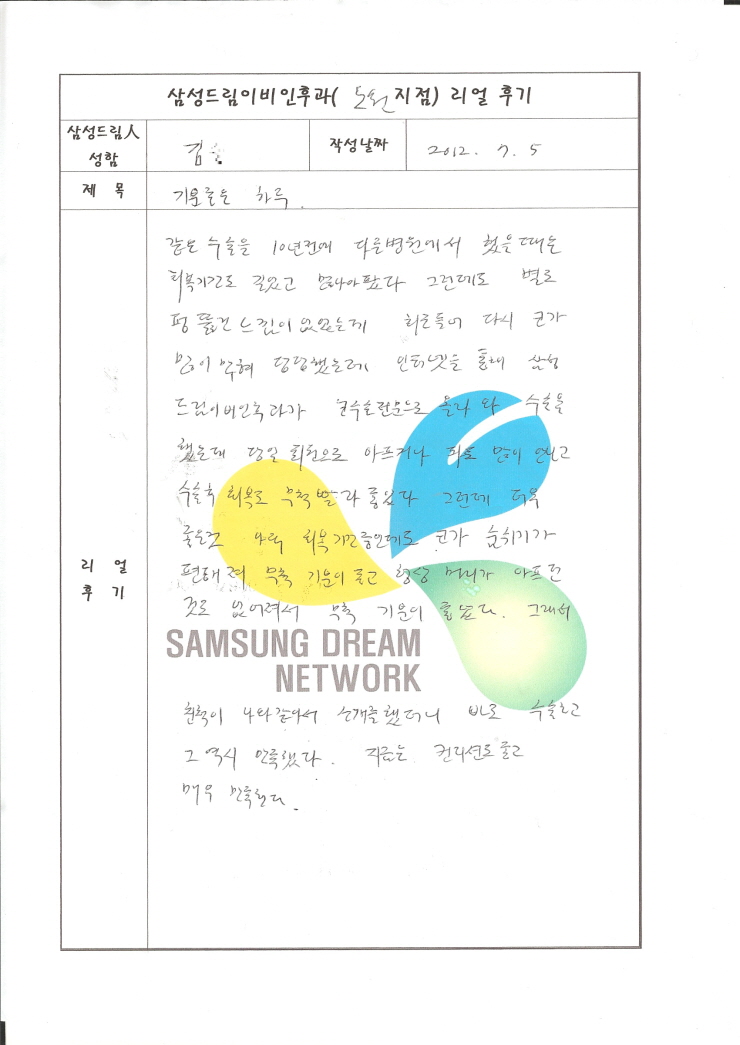 삼성드림이비인후과( 노원 지점) 리얼 후기
삼성드림人 성함
김
작성날짜
2012. 7. 5
제 목
하루.
리 얼 후 기
같은 수술을 10년전에 다른병원에서 했을때는
회복기간도 길었고 많이아팠다 그런데도 별로
펑 뚫린 느낌이 없었는데 최근들어 다시 코가
많이 막혀 답답했는데, 인터넷을 통해 삼성
드림이비인후과가 코수술전문으로 올라 와 수술을
했는데 당일 퇴원으로 아프거나 피도 많이 안나고
수술후 회복도 무척 빨라 좋았다 그런데 더욱
좋은건 아직 회복기간중인데도 코가 숨쉬기가
편해져 무척 기분이 좋고 항상 머리가 아프던
것도 없어져서 무척 기분이 좋았다. 그래서
SAMSUNG DREAM
NETWORK
친척이 나와같아서 소개를했더니 바로 수술하고
그 역시 만족했다. 지금은 컨디션도 좋고
매우 만족한다.